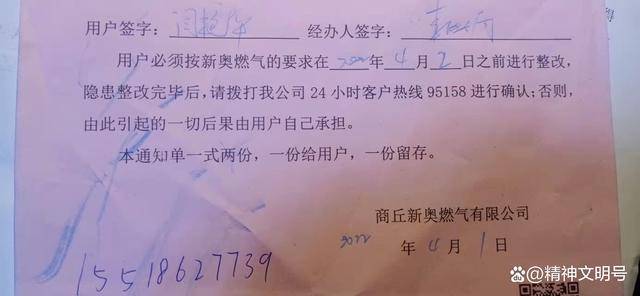 用户签字： 经办人签字：
用户必须按新奥燃气的要求在2022年4月2日之前进行整改，
隐患整改完毕后，请拨打我公司24小时客户热线95158进行确认；否则，
由此引起的一切后果由用户自己承担。
本通知单一式两份，一份给用户，一份留存。
商丘新奥燃气有限公司
2022年4月1日
15518627739
@精神文明号